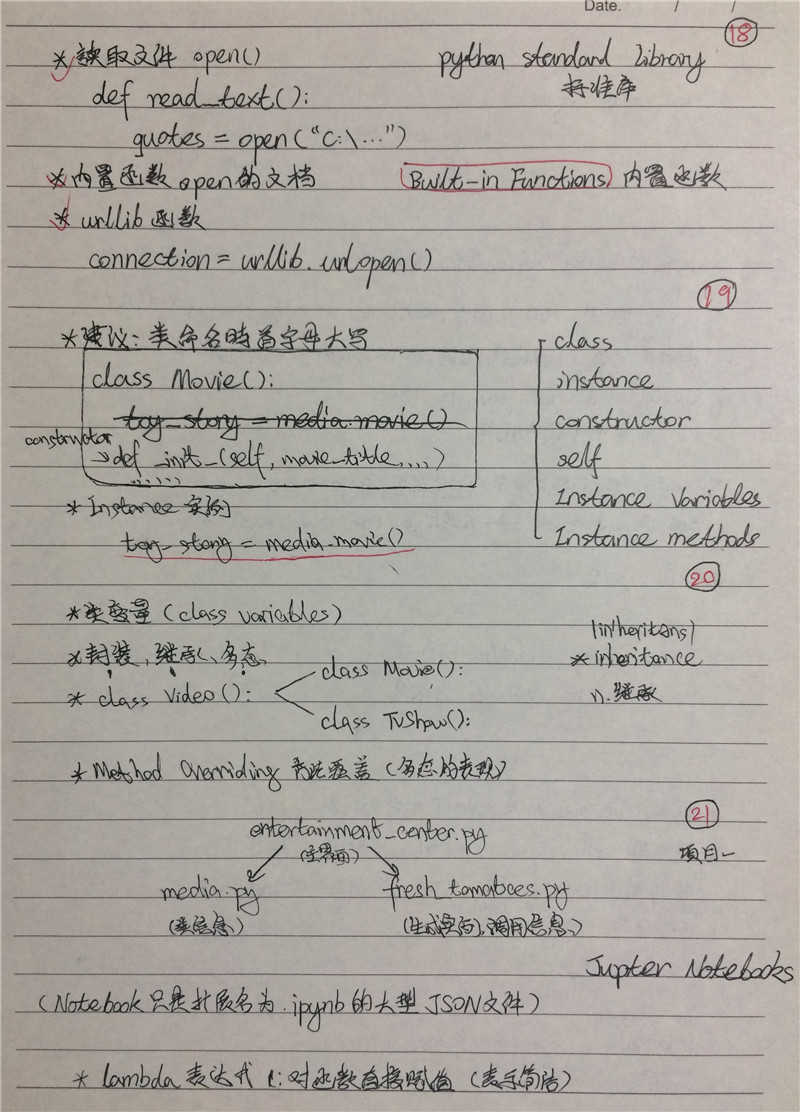 Date. / /
18
* 读取文件 open() python standard library
def read_text(): 标准库
quotes = open("C:\...")
* 内置函数 open的文档 Built-in Functions 内置函数
* urllib 函数
connection = urllib.urlopen()
19
* 建议: 类命名时首字母大写 class
class Movie(): instance
toy_story = media.movie() constructor
constructor
→def _init_(self, movie_title,,,,) self
,,,,,,
* Instance 实例 Instance Variables
toy_story = media.movie() Instance methods
20
* 类变量 (class variables) (inheritans)
* 封装、继承、多态 * inheritance
* class Video(): class Movie(): n. 继承
class TvShow():
* Method Overriding 方法覆盖 (多态的表现)
21
entertainment_center.py
(主界面) 项目一
media.py fresh_tomatoes.py
(类信息) (生成实例、调用信息)
Jupter Notebooks
(Notebook 只是扩展名为.ipynb的大型JSON文件)
* lambda 表达式: 对函数直接赋值 (表示简洁)